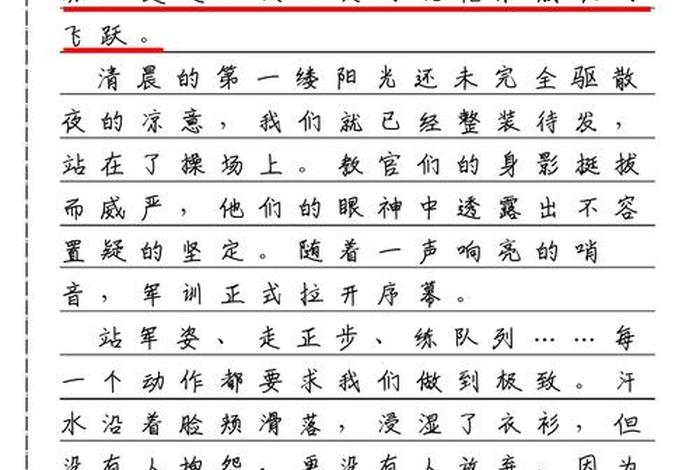 飞跃。
清晨的第一缕阳光还未完全驱散
夜的凉意，我们就已经整装待发，
站在了操场上。教官们的身影挺拔
而威严，他们的眼神中透露出不容
置疑的坚定。随着一声响亮的哨
音，军训正式拉开序幕。
站军姿、走正步、练队列……每
一个动作都要求我们做到极致。汗
水沿着脸颊滑落，浸湿了衣衫，但
没有人抱怨，更没有人放弃。因为